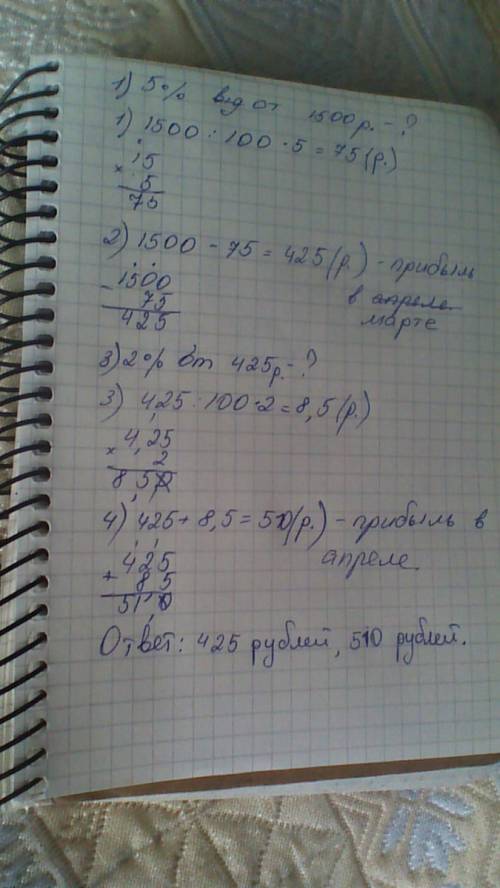 1) 5% от 1500р. - ?
1) 1500 : 100 · 5 = 75 (р.)
× 15
5
75
2) 1500 - 75 = 425 (р.) - прибыль
в марте
- 1500
75
425
3) 2% от 425р. - ?
3) 425 : 100 · 2 = 8,5 (р.)
× 4,25
2
8,50
4) 425 + 8,5 = 510 (р.) - прибыль в
апреле.
+ 425
8 5
510
Ответ: 425 рублей, 510 рублей.